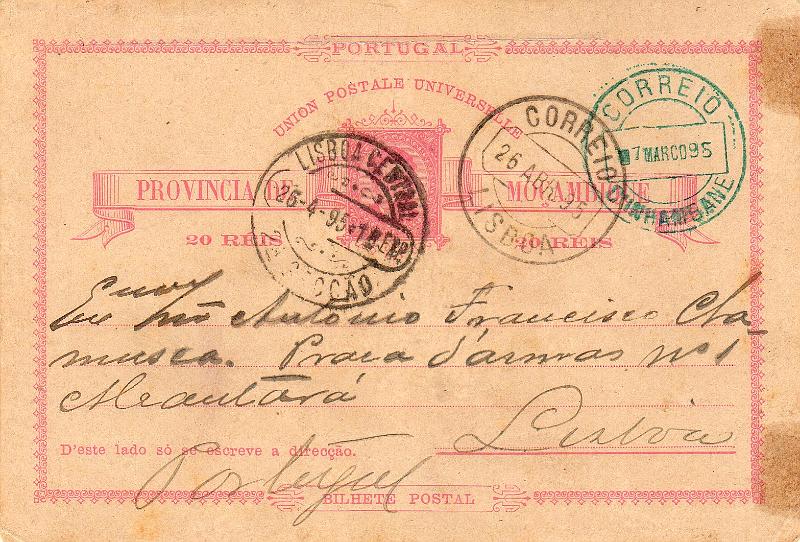 PORTUGAL
UNION POSTALE UNIVERSELLE
PROVINCIA DE MOÇAMBIQUE
20 REIS 20 REIS
LISBOA CENTRAL
26-4-95
2ª SECÇÃO
CORREIO
26 ABR 95
LISBOA
CORREIO
7 MARCO 95
Exmo
Snr António Francisco Cha-
musca. Praça d'armas nº 1
Alcantará
Lisboa
D'este lado só se escreve a direcção.
Portugal
BILHETE POSTAL